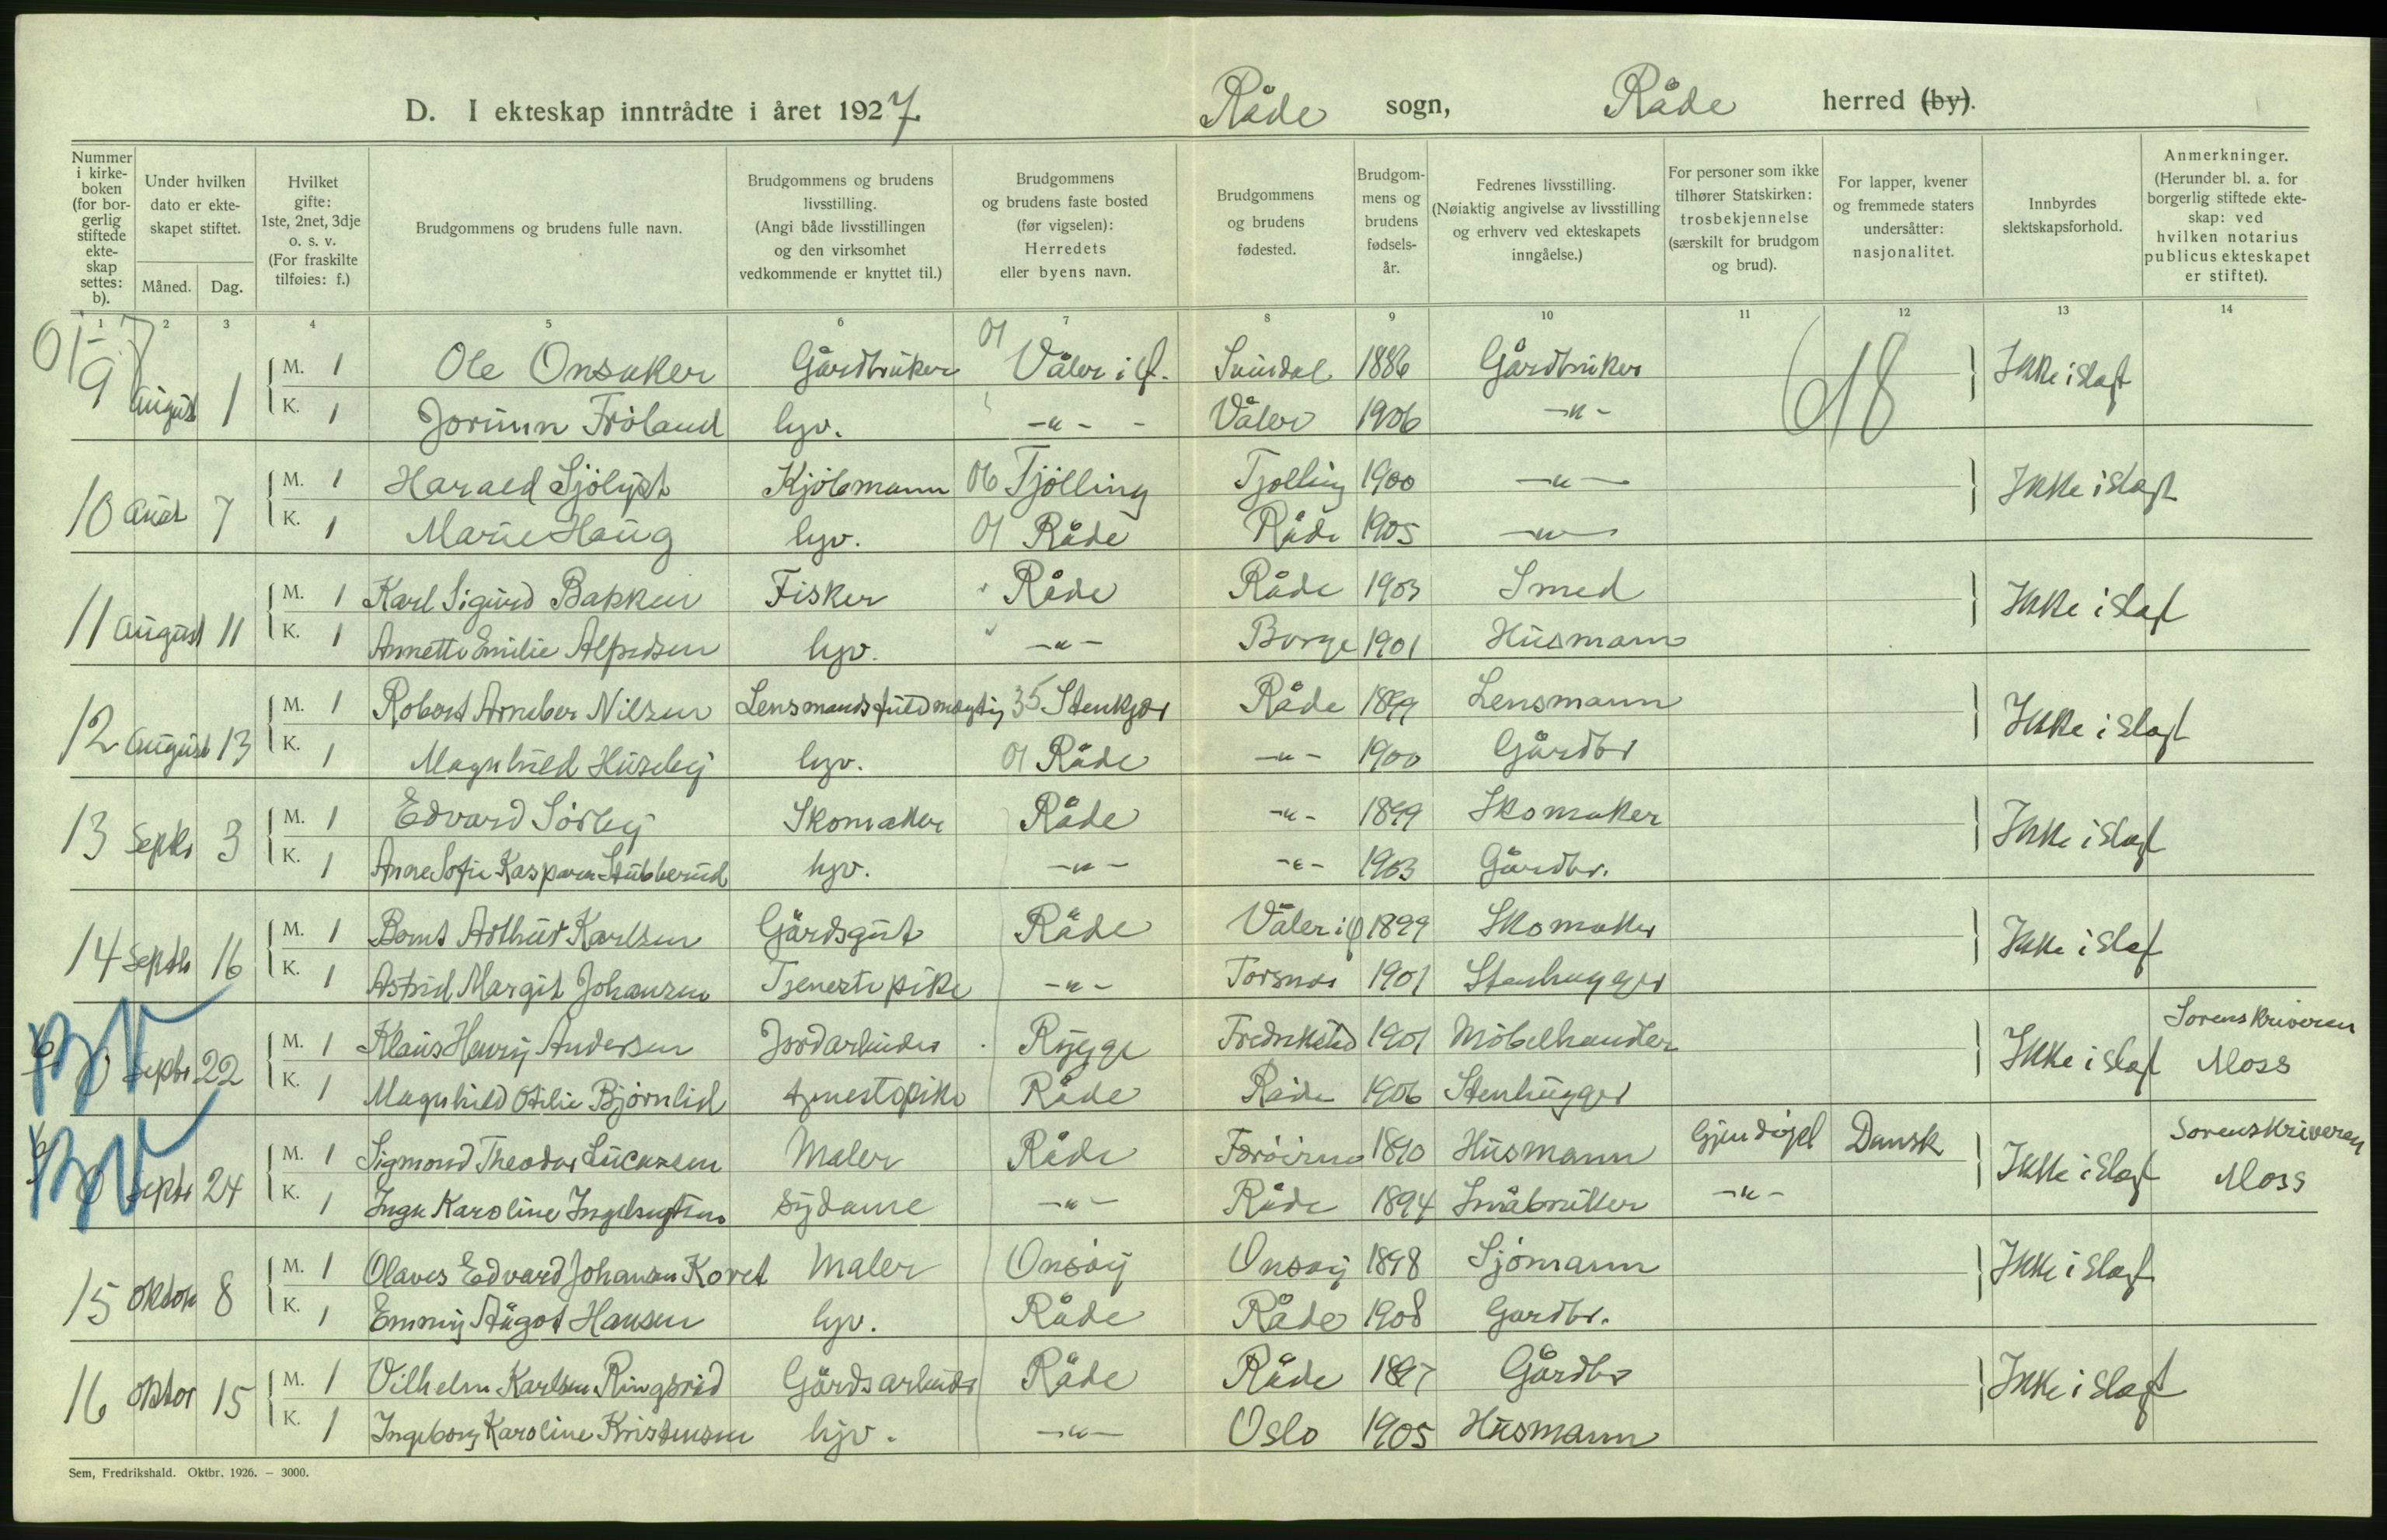 D. I ekteskap inntrådte i året 1927. Råde sogn, Råde herred (by).
Nummer i kirkeboken (for borgerlig stiftede ekteskap settes: b).
Under hvilken dato er ekteskapet stiftet.
Måned. Dag.
Hvilket gifte: 1ste, 2net, 3dje o. s. v. (For fraskilte tilføies: f.)
Brudgommens og brudens fulle navn.
Brudgommens og brudens livsstilling. (Angi både livsstillingen og den virksomhet vedkommende er knyttet til.)
Brudgommens og brudens faste bosted (før vigselen): Herredets eller byens navn.
Brudgommens og brudens fødested.
Brudgommens og brudens fødselsår.
Fedrenes livsstilling. (Nøiaktig angivelse av livsstilling og erhverv ved ekteskapets inngåelse.)
For personer som ikke tilhører Statskirken: trosbekjennelse (særskilt for brudgom og brud).
For lapper, kvener og fremmede staters undersåtter: nasjonalitet.
Innbyrdes slektskapsforhold.
Anmerkninger. (Herunder bl. a. for borgerlig stiftede ekteskap: ved hvilken notarius publicus ekteskapet er stiftet).
1 2 3 4 5 6 7 8 9 10 11 12 13 14
9 August 1 M. 1 Ole Onsaker Gårdbruker 01 Våler i Ø. Svindal 1886 Gårdbruker 618 Ikke i slagt
K. 1 Jorunn Fröland hjv. -"- Våler 1906 -"-
10 Aust 7 M. 1 Harald Sjölyst Kjöbmann 06 Tjölling Tjölling 1900 -"- Ikke i slagt
K. 1 Marie Haug hjv. 01 Råde Råde 1905 -"-
11 August 11 M. 1 Karl Sigurd Bakken Fisker Råde Råde 1903 Smed Ikke i slagt
K. 1 Annette Emilie Alfredsen hjv. -"- Borge 1901 Husmann
12 August 13 M. 1 Robert Arneber Nilsen Lensmandsfuldmægtig 35 Stenkjær Råde 1899 Lensmann Ikke i slagt
K. 1 Magnhild Huseby hjv. 01 Råde -"- 1900 Gårdbr
13 Septbr 3 M. 1 Edvard Sörby Skomaker Råde -"- 1899 Skomaker Ikke i slagt
K. 1 Anne Sofie Kaspara Stubberud hjv. -"- -"- 1903 Gårdbr.
14 Septbr 16 M. 1 Bernt Arthur Karlsen Gårdsgut Råde Våler i Ø 1899 Skomaker Ikke i slagt
K. 1 Astrid Margit Johansen Tjenestepike -"- Torsnes 1901 Stenhugger
b Septbr 22 M. 1 Klaus Henry Andersen Jordarbeider Rygge Fredrikstad 1901 Möbelhandler Ikke i slagt Sorenskriveren
K. 1 Magnhild Otilie Björnlid tjenestepike Råde Råde 1906 Stenhugger Moss
b Septbr 24 M. 1 Sigmond Theodor Lucassen Maler Råde Færöirne 1890 Husmann Gjendøpt Dansk Ikke i slagt Sorenskriveren
K. 1 Inga Karoline Ingebrigtsen Sydame -"- Råde 1894 Småbruker -"- Moss
15 Oktbr 8 M. 1 Olaves Edvard Johansen Koret Maler Onsöy Onsöy 1898 Sjömann Ikke i slagt
K. 1 Emmy Ågot Hansen hjv. Råde Råde 1908 Gardbr.
16 Oktbr 15 M. 1 Vilhelm Karlsen Ringsrød Gårdsarbeider Råde Råde 1897 Gårdbr Ikke i slagt
K. 1 Ingeborg Karoline Kristensen hjv. -"- Oslo 1905 Husmann
Sem, Fredrikshald. Oktbr. 1926. – 3000.